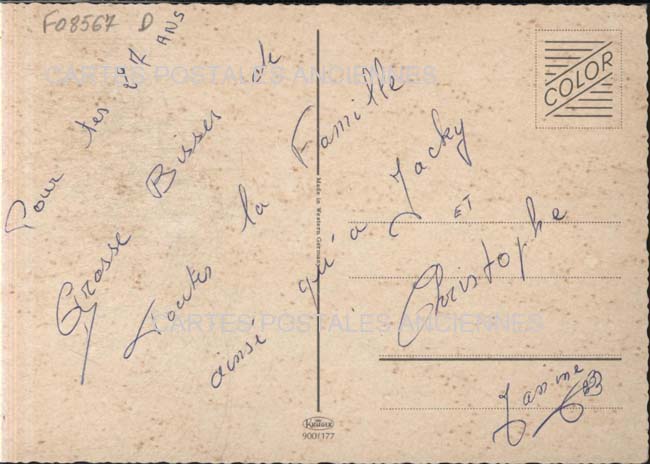 F08567 D
Pour tes 2017 ANS
Grosse Bisses de
toutes la Famille
ainsi qu'a Jacky
ET
Christophe
Janine
COLOR
Made in Western Germany
Krüger
900/177
CARTES POSTALES ANCIENNES
CARTES POSTALES ANCIENNES